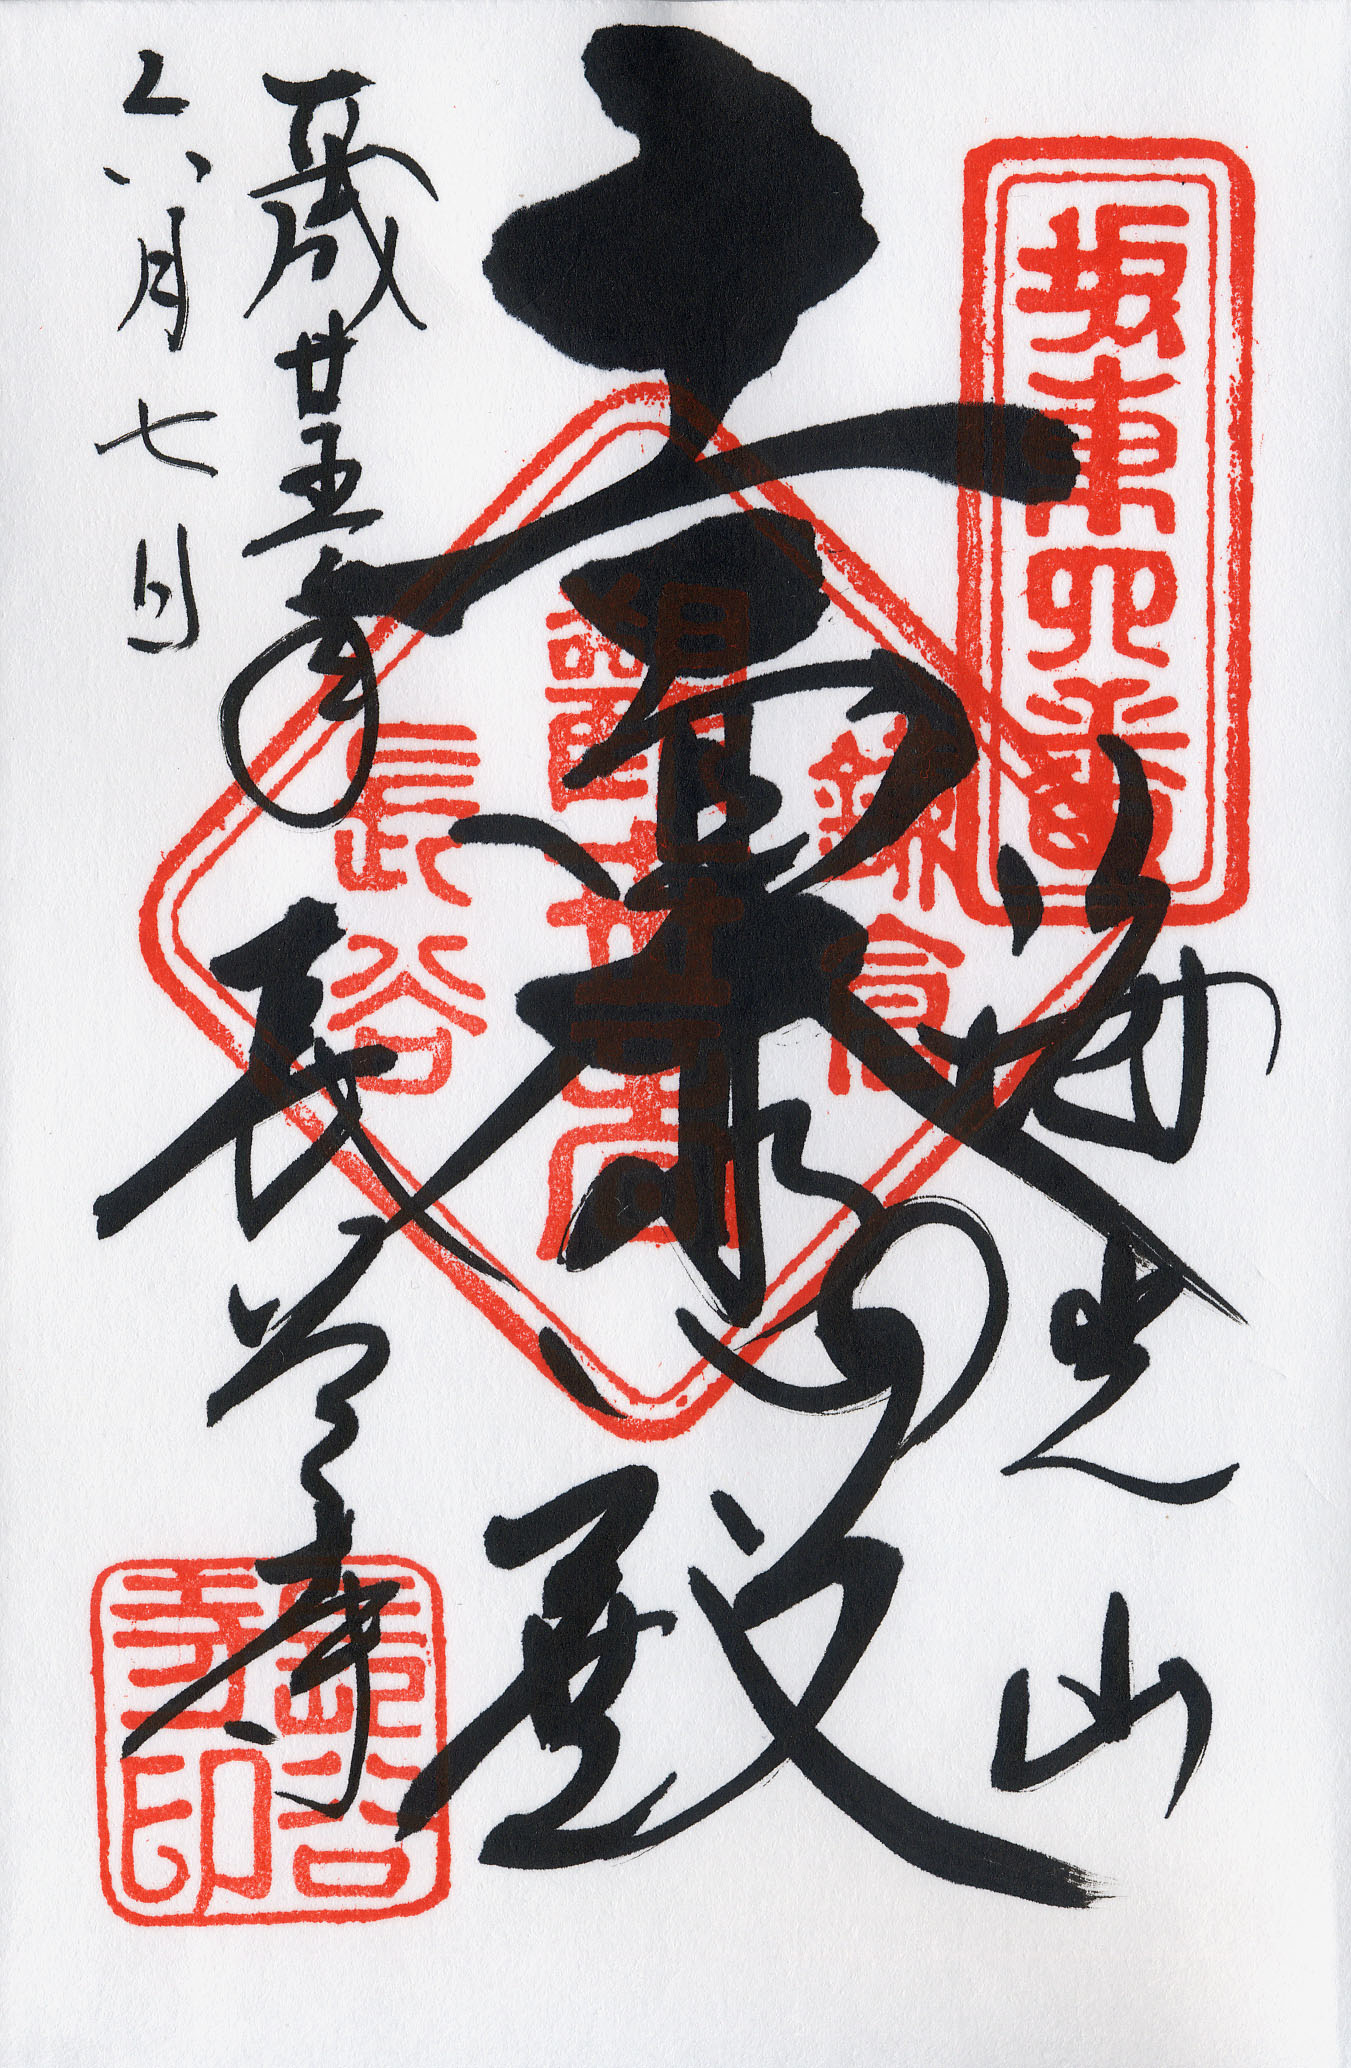 坂東四番
海光山
殿
鎌倉
觀世音
長谷
廿五年
六月七日
長谷寺
長谷
寺印